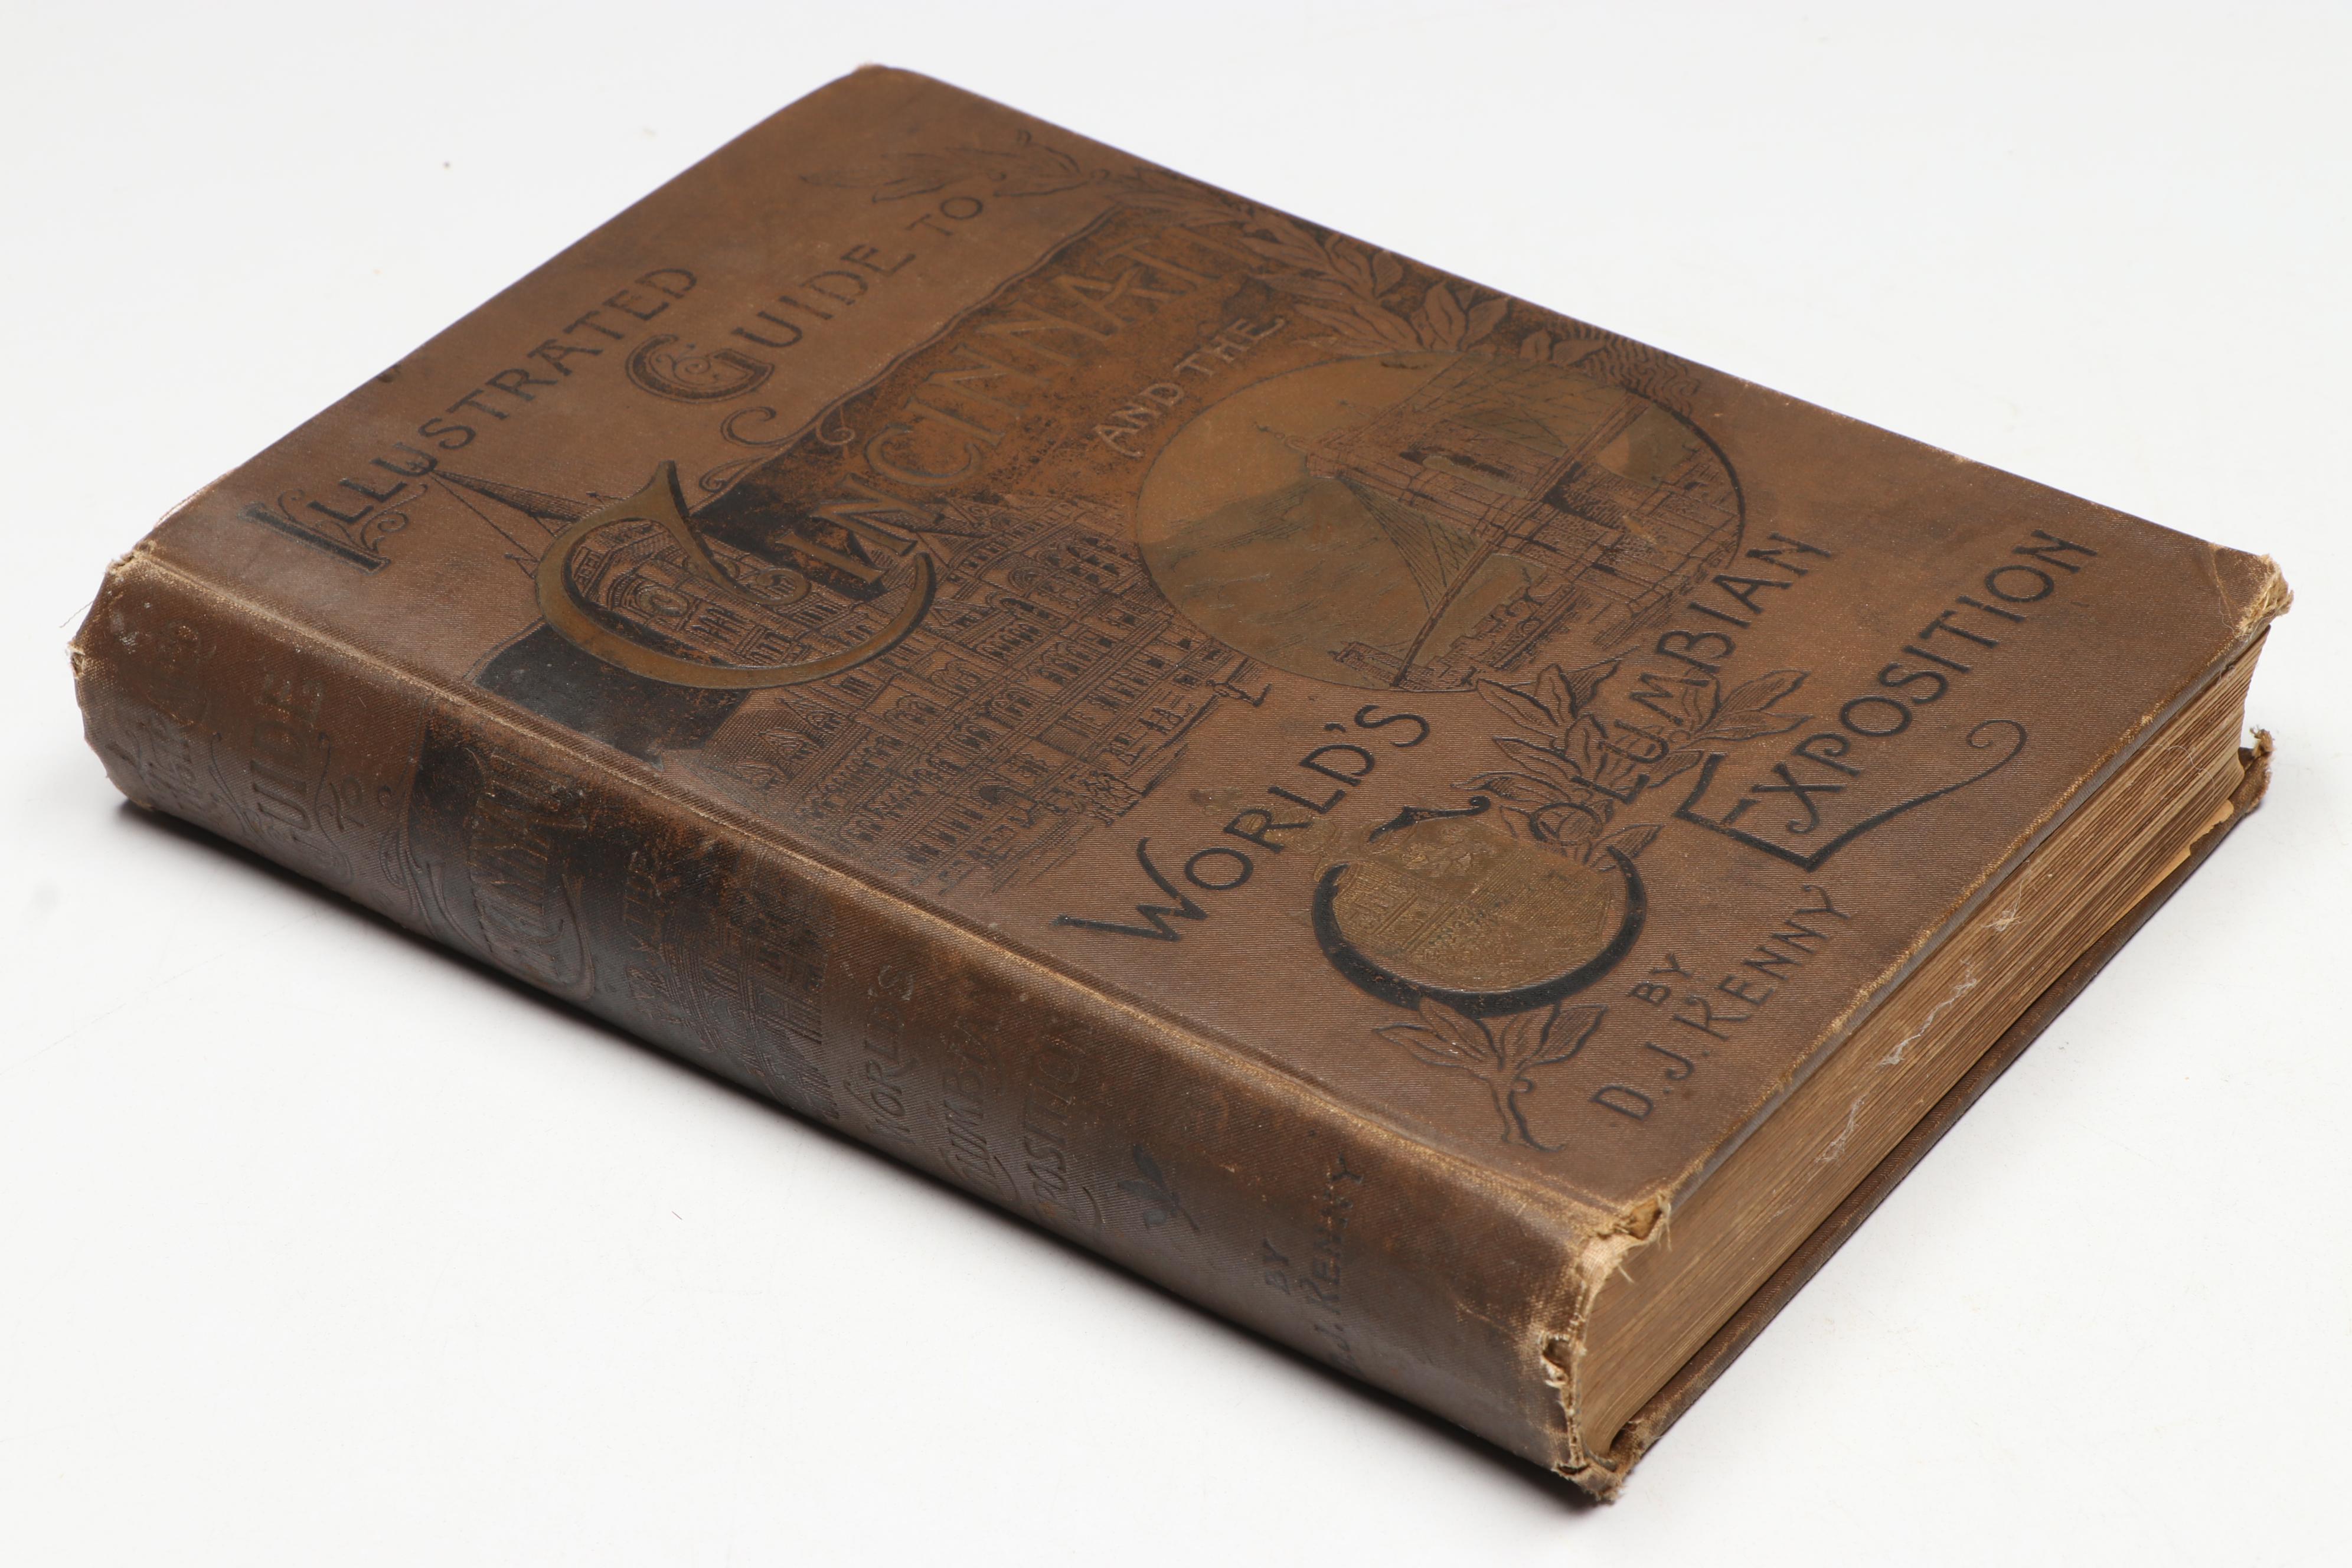 ILLUSTRATED
GUIDE TO
CINCINNATI
AND THE
WORLD'S
COLUMBIAN
EXPOSITION
BY
D.J. KENNY
GUIDE
TO
CINCINNATI
AND THE
WORLD'S
COLUMBIAN
EXPOSITION
BY
D.J. KENNY